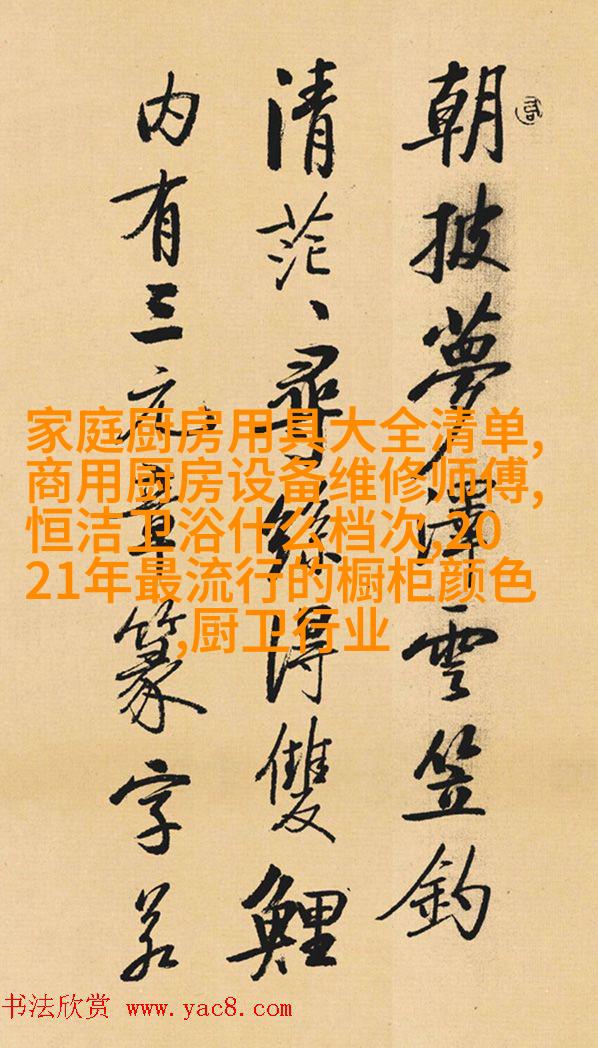 朝披夢澤雲笠釣
清茫、尋絲得雙鯉
内有三元章篆字若
家庭厨房用具大全清单,
商用厨房设备维修师傅,
恒洁卫浴什么档次,20
21年最流行的橱柜颜色
,厨卫行业
书法欣赏 www.yac8.com